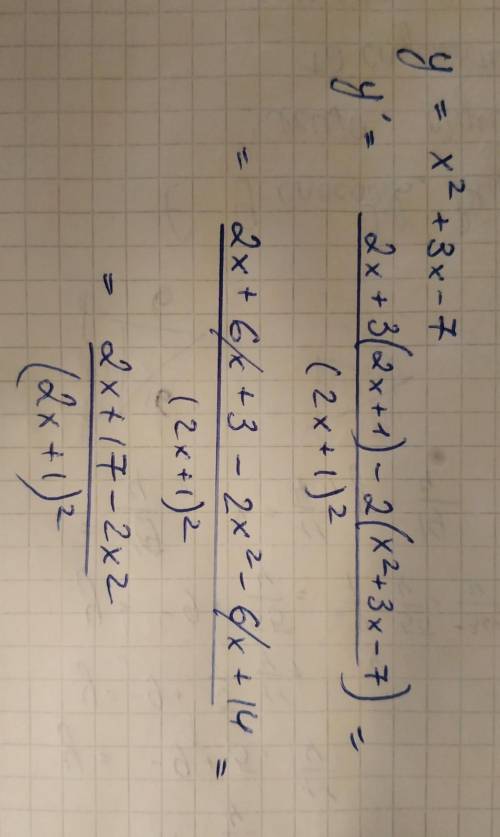 y = x² + 3x - 7
y' = 2x + 3(2x + 1) - 2(x² + 3x - 7) =
(2x + 1)²
= 2x + 6x + 3 - 2x² - 6x + 14 =
(2x + 1)²
= 2x + 17 - 2x2
(2x + 1)²